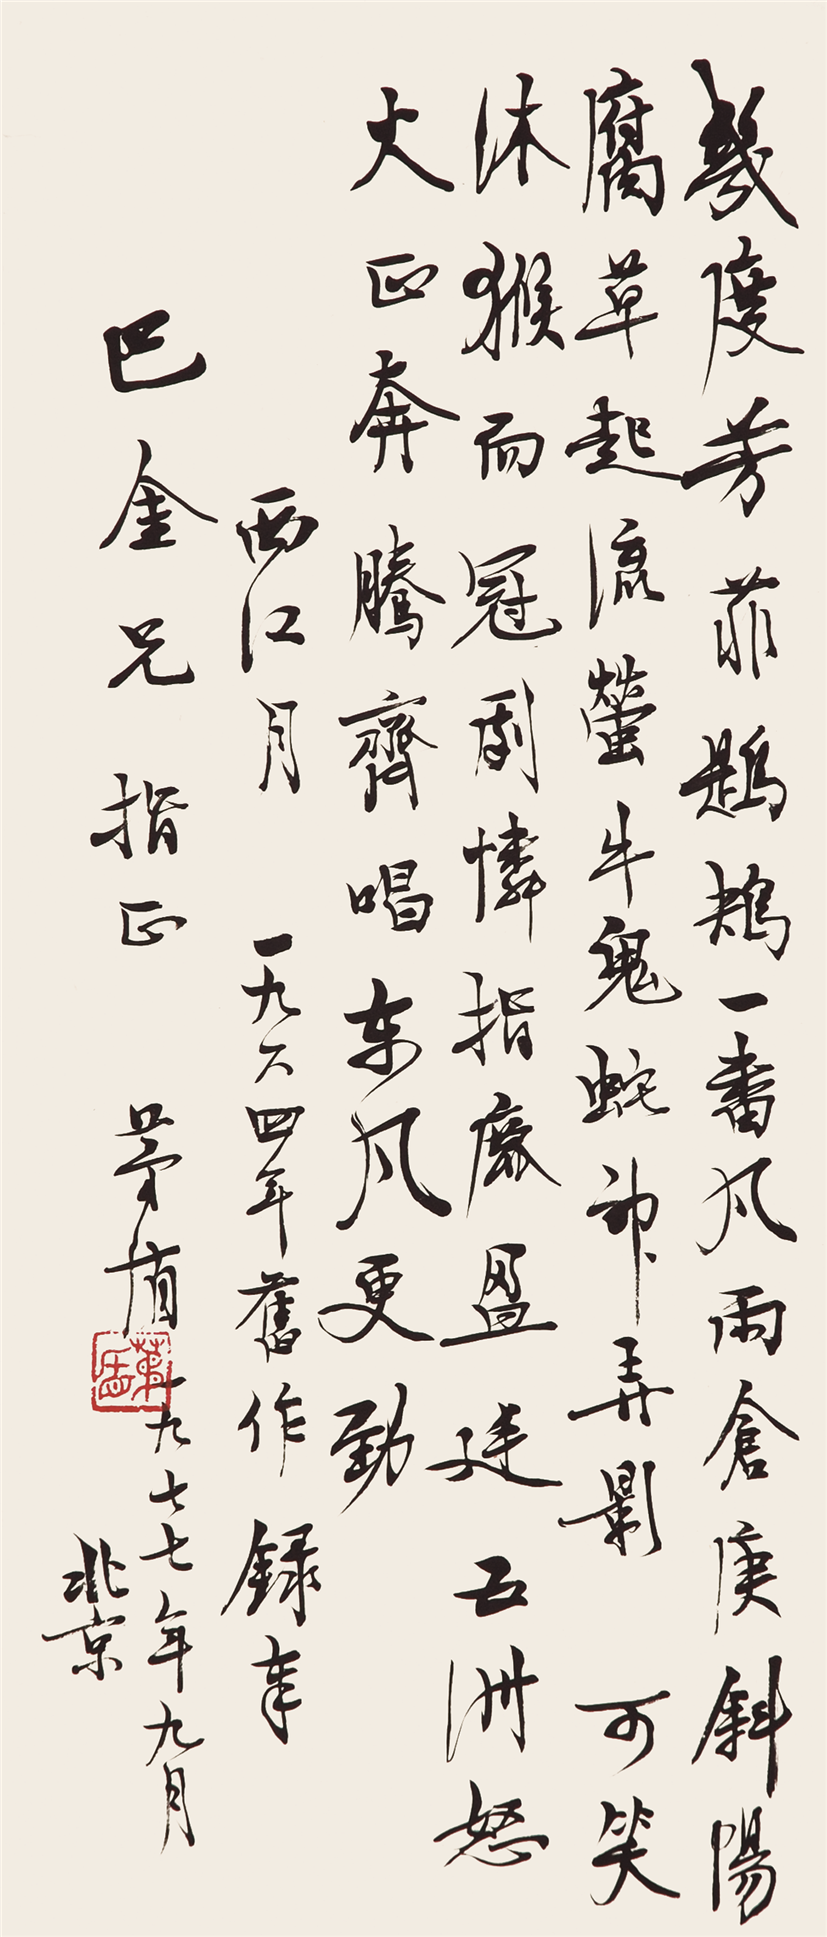 幾度芳菲鶗鴂一番风雨倉庚斜陽
腐草起流螢牛鬼蛇神弄影 可笑
沐猴而冠劇憐指鹿盈廷五洲怒
火正奔騰齊唱东风更勁
西江月 一九六四年舊作録奉
巴金兄指正 茅盾
一九七七年九月
北京